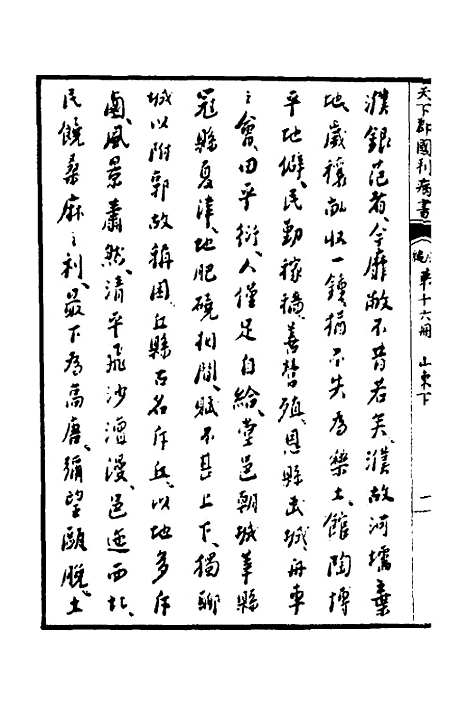 天下郡國利病書 原編第十六冊 山東下 一
濮銀范者今靡敝不昔若矣濮故河壖棄
地歲穰畝收一鍾猶不失為樂土館陶博
平地僻民勤稼穡善營殖恩縣武城舟車
之會田平衍人僅足自給堂邑朝城莘縣
冠縣夏津地肥磽相間賦不甚上下獨聊
城以附郭故稱困丘縣古名斥丘以地多斥
鹵風景肅然清平飛沙澶漫邑迤西北
民饒桑麻之利最下為高唐彌望甌脫土